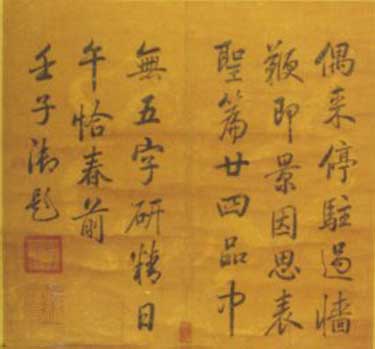 偶来停驻过墙
颠即景因思表
聖篇廿四品中
無五字研精日
午恰春前
壬子御题